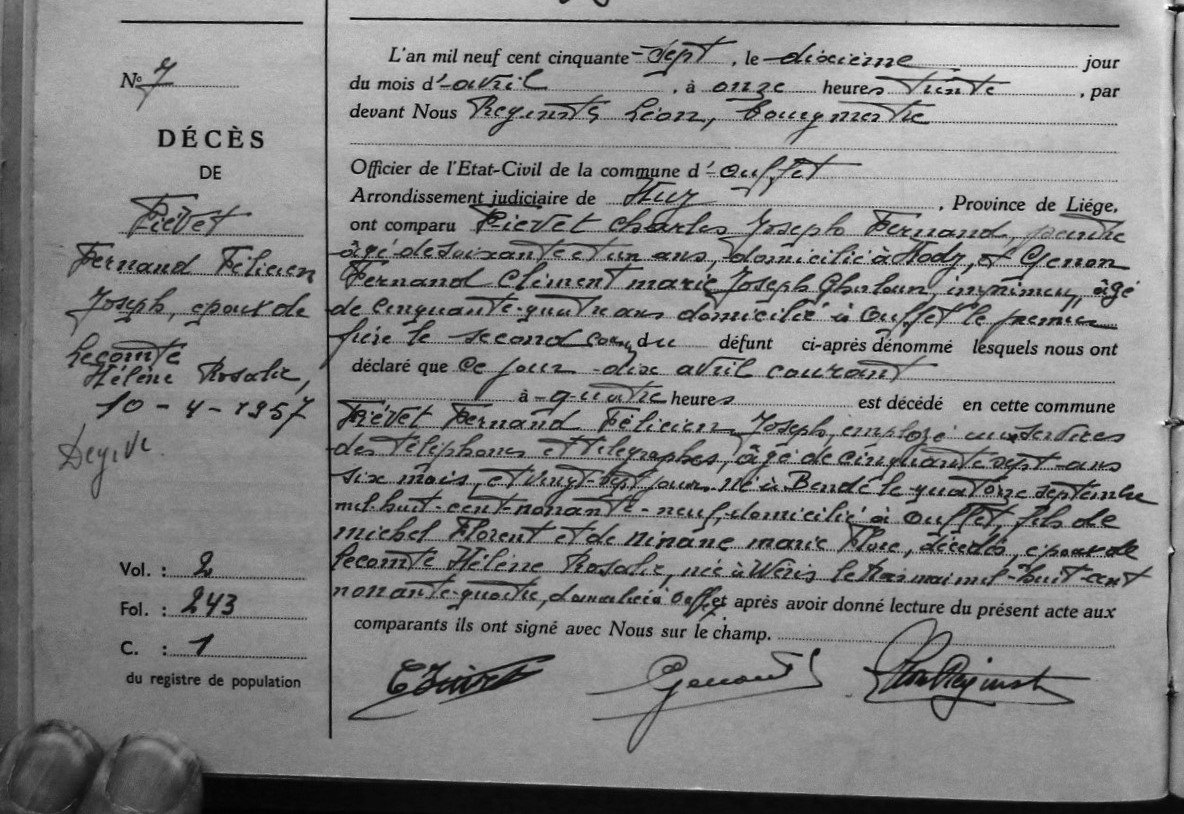 Nº 7
DÉCÈS
DE
Fiévet
Fernand Félicien
Joseph, epoux de
Lecomte
Hélène Rosalie,
10 - 4 - 1957
Vol. : 2
Fol. : 243
C. : 1
du registre de population
L'an mil neuf cent cinquante-sept, le dixième jour
du mois d'avril, à onze heures trente, par
devant Nous Reginste Léon, bourgmestre
Officier de l'Etat-Civil de la commune d'Ouffet
Arrondissement judiciaire de Huy, Province de Liége,
ont comparu Fiévet Charles Joseph Fernand, peintre
âgé de soixante et un ans, domicilié à Mody, et Genon
Fernand Clément marie Joseph Ghislain, imprimeur, âgé
de cinquante-quatre ans domicilié à Ouffet le premier
frère le second du défunt ci-après dénommé lesquels nous ont
déclaré que ce jour dix avril courant
à quatre heures est décédé en cette commune
Fiévet Fernand Félicien Joseph, employé aux services
des Téléphones et Télégraphes, âgé de cinquante sept ans
six mois, et vingt-sept jours né à Bende le quatorze septembre
mil-huit-cent-nonante-neuf, domicilié à Ouffet, fils de
michel Florent et de Ninane marie Flore, décédés, epoux de
Lecomte Hélène Rosalie, née à Wéris le trois mai mil-huit-cent
nonante-quatre, domiciliée à Ouffet et après avoir donné lecture du présent acte aux
comparants ils ont signé avec Nous sur le champ.
Genon